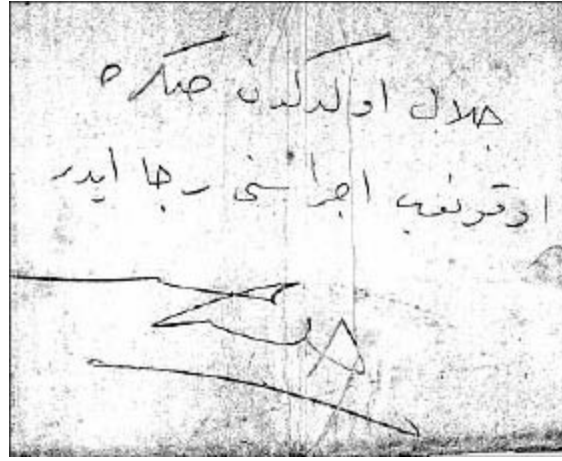 جلال اولدكدن صكره
اوقونوب اجراسنی رجا ایدر